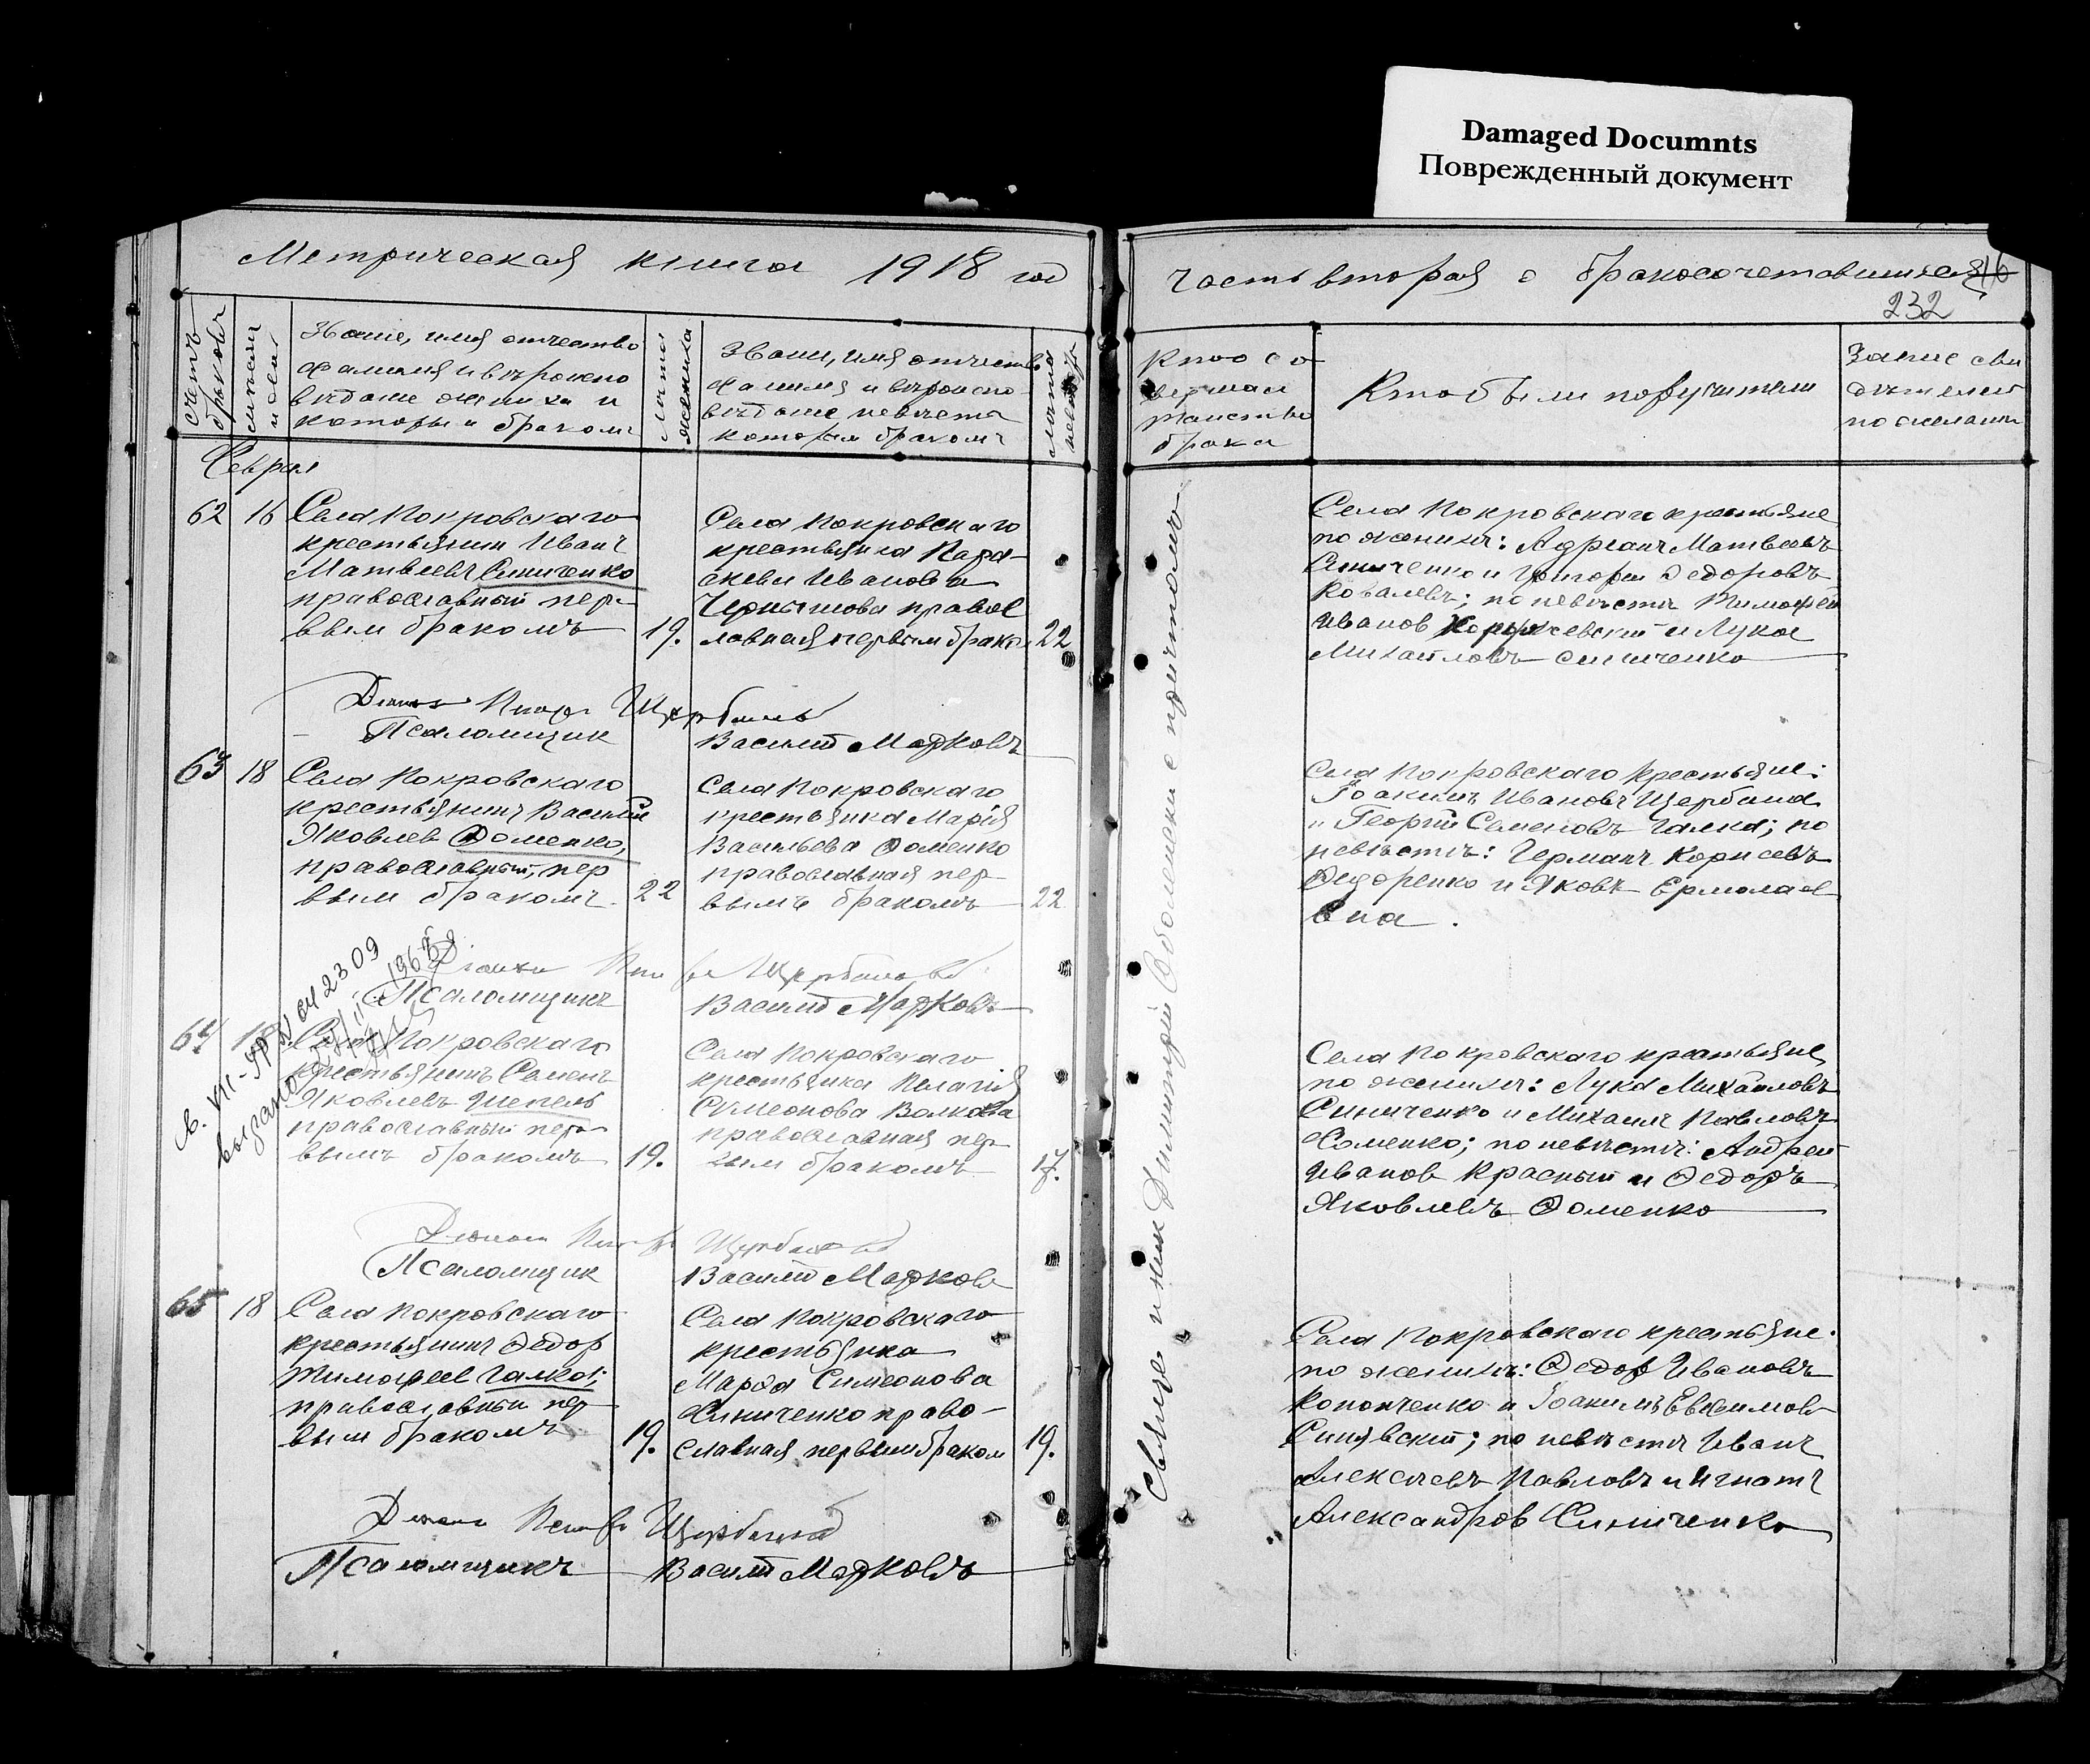 Damaged Documnts
Поврежденный документ
Метрическая книга 1918 год
счетъ браковъ
Званіе, имя отчество
фамилія и вѣроиспо
вѣданіе жениха и
которы и бракомъ
лѣта жениха
Звани, имя отчество
фамилия и вѣроиспо-
вѣданіе невѣсты
которым бракомъ
лѣта невѣсты
Феврал
62 16 Села Покровскаго
крестьянин Иванъ
Матвеевъ Синиченко
православный пер-
вым бракомъ 19.
Села Покровскаго
крестьянка Пара-
скева Иванова
Чернышова правос
лавная первым брако 22
Псаломщик Василий Марковъ
63 18 Села Покровскаго
крестьянинъ Василий
Яковлев Фоменко,
православный, пер
вым бракомъ 22
Села Покровскаго
крестьянка Марія
Васильева Фоменко
православная пер-
вымъ бракомъ 22
Псаломщикъ Василий Марковъ
64 18 Села Покровскаго
крестьянинъ Семенъ
Яковлевъ Шепель
православный пер-
вымъ бракомъ 19.
Села Покровскаго
крестьянка Пелагія
Симеонова Волкова
православная пер-
вым бракомъ 17.
Псаломщик Василий Марков
65 18 Села Покровскаго
крестьянинъ Федор
Тимофеев Галка;
православный пер
вым бракомъ 19.
Села Покровскаго
крестьянка
Марфа Симеонова
Синиченко право-
славная первым браком 19.
Псаломщикъ Василий Марковъ
часть вторая о бракосочетавшихся
232
Кто со
вершал
таинство
брака
Кто были поручители
по желанию
Священник Димитрий с причтомъ
Села Покровскаго крестьяне
по женихѣ: Адріанъ Матвеевъ
Синиченко и Григорий Федоровъ
Ковалевъ; по невѣстѣ Тимофей
Иванов и Лука
Михайловъ Синиченко
Села Покровскаго крестьяне:
Іоакимъ Ивановъ Щербина
и Георгий Семеновъ Галка; по
невѣстѣ: Германъ Корнеевъ
Федоренко и Яковъ Ермолаев
Села Покровскаго крестьяне
по женихѣ: Лука Михайловъ
Синиченко и Михаилъ Павловъ
Фоменко; по невѣстѣ: Андрей
Иванов Красный и Федоръ
Яковлевъ Фоменко
Села Покровскаго крестьяне.
по женихѣ: Федор Ивановъ
Кононченко и Іоакимъ Евфимов
Синявский; по невѣстѣ Иванъ
Алексеевъ Павловъ и Игнатъ
Александров Синиченко